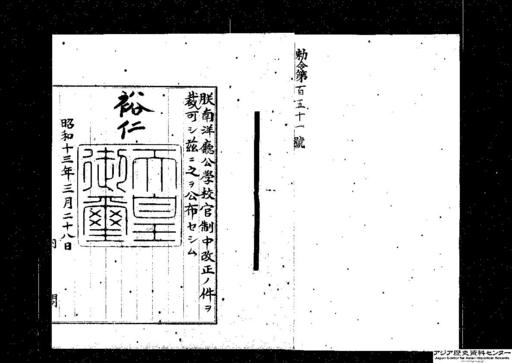 勅令第百五十一號
朕南洋廳公學校官制中改正ノ件ヲ
裁可シ茲ニ之ヲ公布セシム
裕仁
天皇
御璽
昭和十三年三月二十八日
アジア歴史資料センター
Japan Center for Asian Historical Records